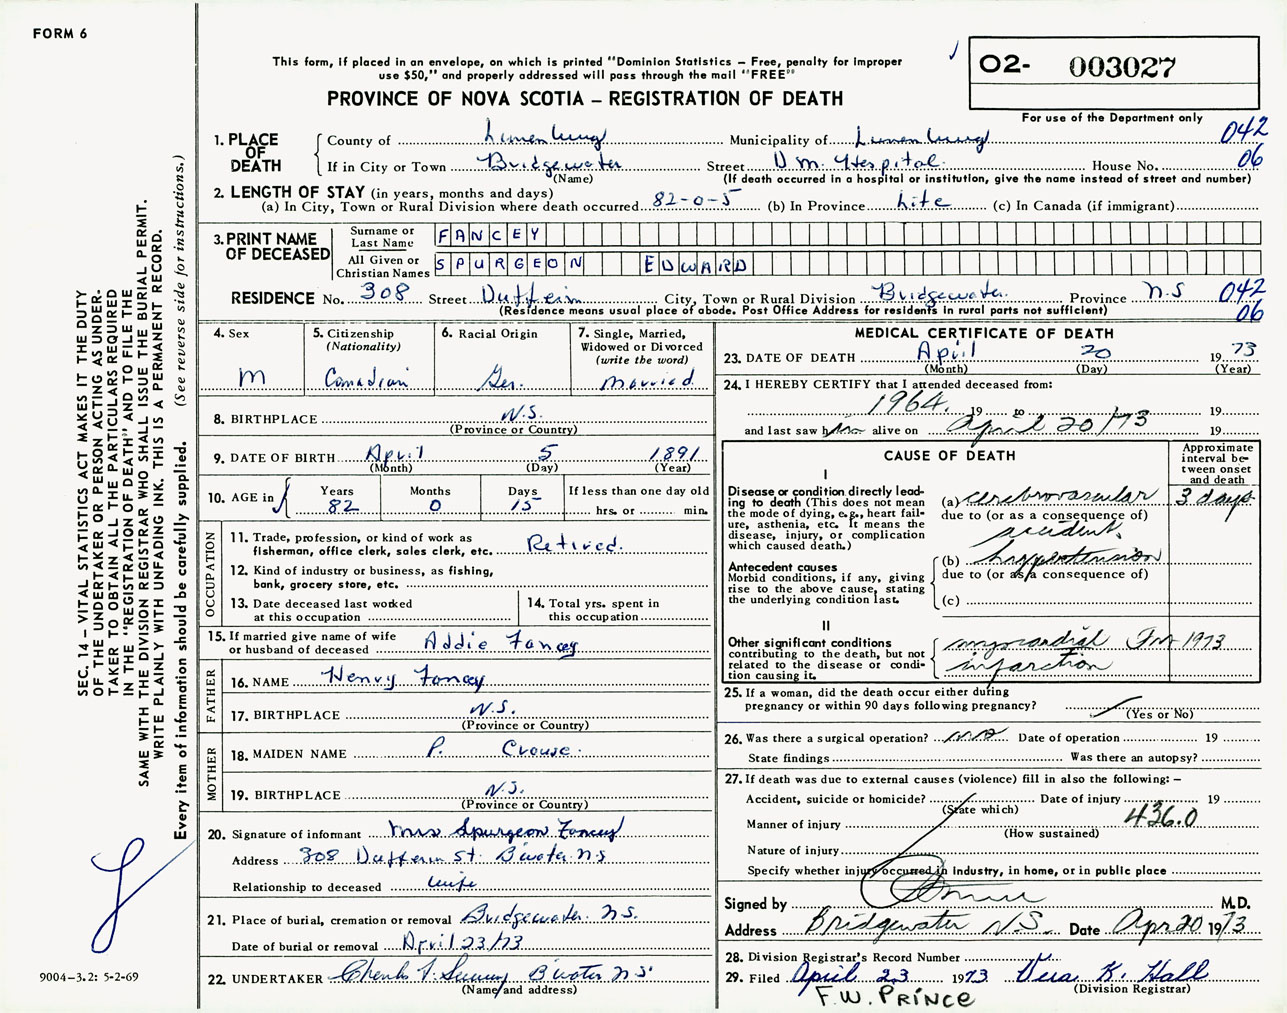 FORM 6
This form, if placed in an envelope, on which is printed "Dominion Statistics – Free, penalty for improper
use $50," and properly addressed will pass through the mail "FREE"
PROVINCE OF NOVA SCOTIA – REGISTRATION OF DEATH
O2- 003027
For use of the Department only
042
06
1. PLACE OF DEATH
County of Lunenburg Municipality of Lunenburg
If in City or Town Bridgewater Street D.M. Hospital House No.
(Name) (If death occurred in a hospital or institution, give the name instead of street and number)
2. LENGTH OF STAY (in years, months and days)
(a) In City, Town or Rural Division where death occurred 82-0-5 (b) In Province Life (c) In Canada (if immigrant)
3. PRINT NAME OF DECEASED
Surname or Last Name FANCEY
All Given or Christian Names SPURGEON EDWARD
RESIDENCE No. 308 Street Dufferin City, Town or Rural Division Bridgewater Province N.S 042
(Residence means usual place of abode. Post Office Address for residents in rural parts not sufficient) 06
4. Sex
M
5. Citizenship
(Nationality)
Canadian
6. Racial Origin
Ger.
7. Single, Married,
Widowed or Divorced
(write the word)
Married
8. BIRTHPLACE N.S.
(Province or Country)
9. DATE OF BIRTH April 5 1891
(Month) (Day) (Year)
10. AGE in
Years Months Days If less than one day old
82 0 15 hrs. or min.
OCCUPATION
11. Trade, profession, or kind of work as
fisherman, office clerk, sales clerk, etc. Retired.
12. Kind of industry or business, as fishing,
bank, grocery store, etc.
13. Date deceased last worked
at this occupation
14. Total yrs. spent in
this occupation
15. If married give name of wife
or husband of deceased Addie Fancey
FATHER
16. NAME Henry Fancey
17. BIRTHPLACE N.S.
(Province or Country)
MOTHER
18. MAIDEN NAME P. Crouse
19. BIRTHPLACE N.S.
(Province or Country)
20. Signature of informant Mrs Spurgeon Fancey
Address 308 Dufferin St. B'water N.S
Relationship to deceased wife
21. Place of burial, cremation or removal Bridgewater N.S.
Date of burial or removal April 23/73
22. UNDERTAKER B'water N.S.
(Name and address)
MEDICAL CERTIFICATE OF DEATH
23. DATE OF DEATH April 20 1973
(Month) (Day) (Year)
24. I HEREBY CERTIFY that I attended deceased from:
1964. 19 to 19
and last saw him alive on April 20/73 19
CAUSE OF DEATH
Approximate
interval be-
tween onset
and death
I
Disease or condition directly lead-
ing to death (This does not mean
the mode of dying, e.g., heart fail-
ure, asthenia, etc. It means the
disease, injury, or complication
which caused death.)
(a) cerebrovascular 3 days
due to (or as a consequence of)
accident
Antecedent causes
Morbid conditions, if any, giving
rise to the above cause, stating
the underlying condition last.
(b) hypertension
due to (or as a consequence of)
(c)
II
Other significant conditions
contributing to the death, but not
related to the disease or condi-
tion causing it.
myocardial 1973
infarction
25. If a woman, did the death occur either during
pregnancy or within 90 days following pregnancy?
(Yes or No)
26. Was there a surgical operation? no Date of operation 19
State findings Was there an autopsy?
27. If death was due to external causes (violence) fill in also the following: –
Accident, suicide or homicide? Date of injury 19
(State which)
Manner of injury 436.0
(How sustained)
Nature of injury
Specify whether injury occurred in industry, in home, or in public place
Signed by M.D.
Address Bridgewater N.S. Date Apr 20 1973
28. Division Registrar's Record Number
29. Filed April 23 1973 Vera K. Hall
(Division Registrar)
F.W. PRINCE
SEC. 14 – VITAL STATISTICS ACT MAKES IT THE DUTY
OF THE UNDERTAKER OR PERSON ACTING AS UNDER-
TAKER TO OBTAIN ALL THE PARTICULARS REQUIRED
IN THE "REGISTRATION OF DEATH" AND TO FILE THE
SAME WITH THE DIVISION REGISTRAR WHO SHALL ISSUE THE BURIAL PERMIT.
WRITE PLAINLY WITH UNFADING INK. THIS IS A PERMANENT RECORD.
Every item of information should be carefully supplied. (See reverse side for instructions.)
9004-3.2: 5-2-69